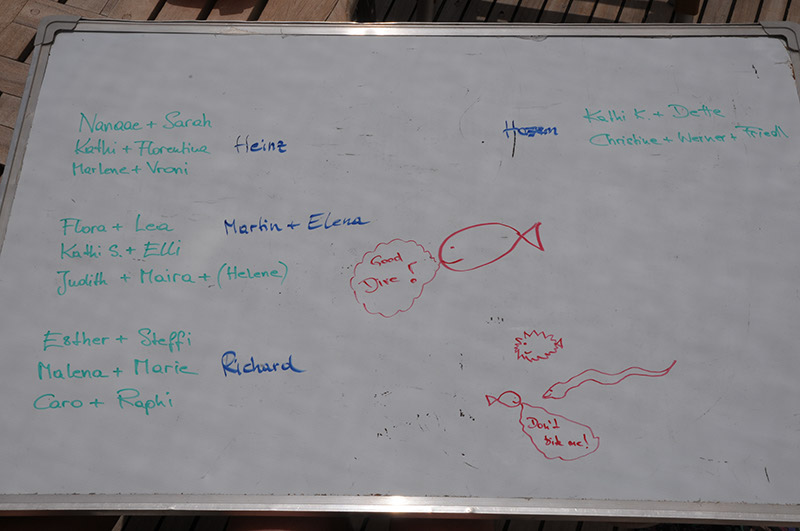 Nanaae + Sarah
Kathi + Florentina Heinz
Marlene + Vroni
Hazem
Kathi K. + Dette
Christine + Werner + Friedl
Flora + Lea Martin + Elena
Kathi S. + Elli
Judith + Maira + (Helene)
Good
Dive!
Esther + Steffi
Malena + Marie Richard
Caro + Raphi
Don't
bite me!